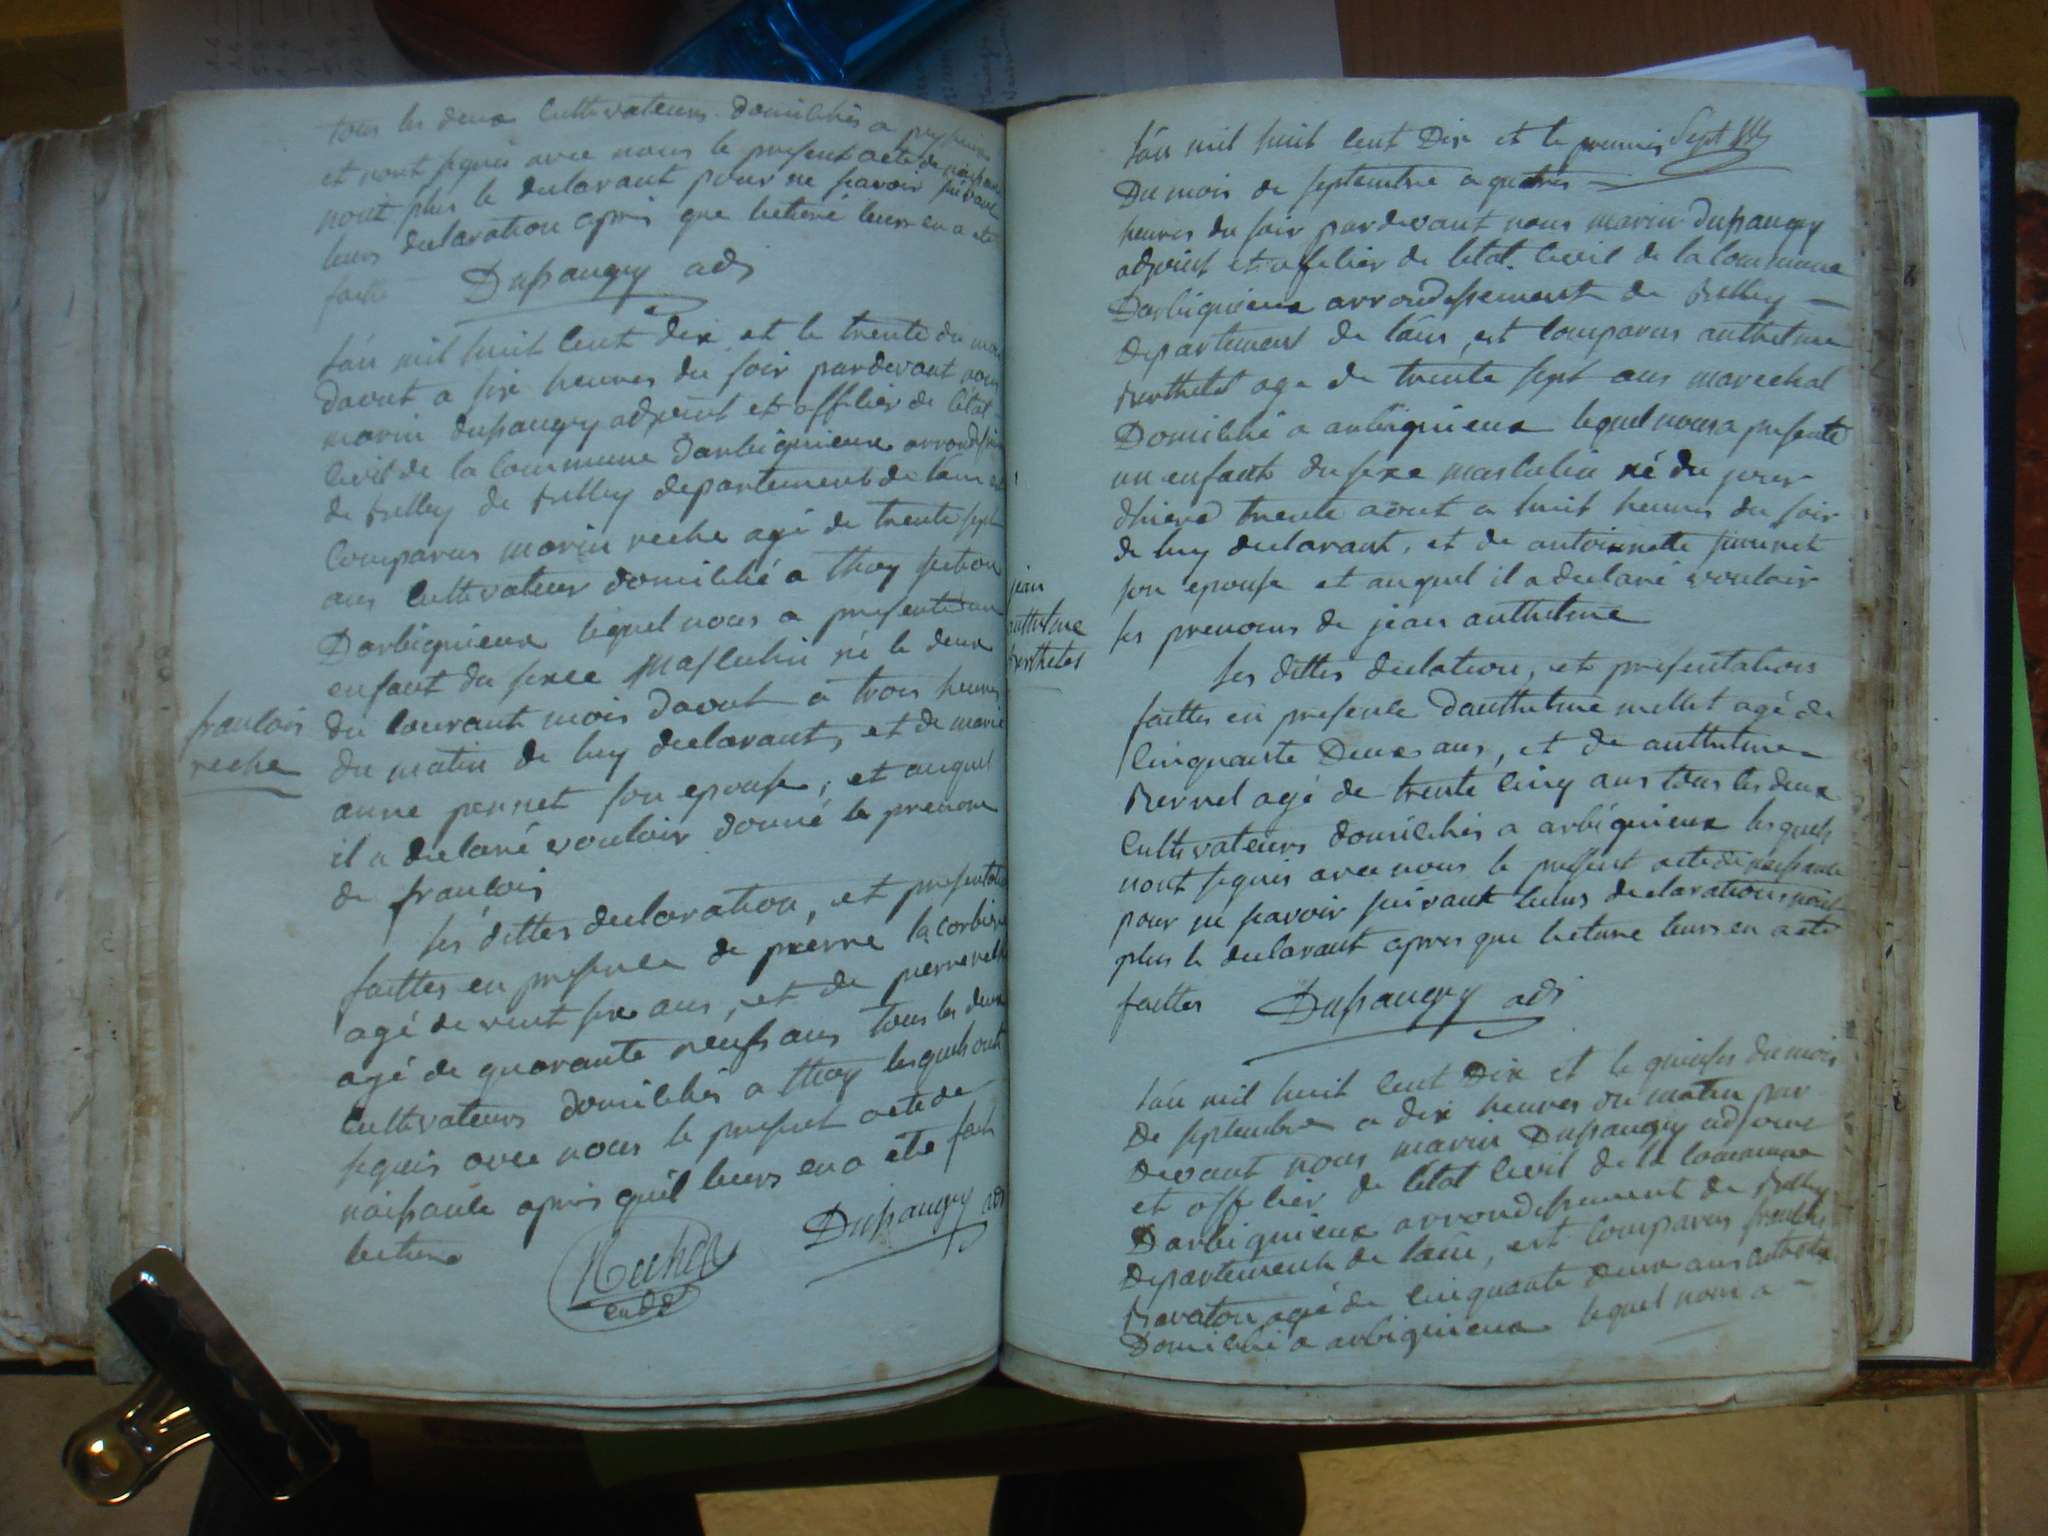 tous les deux cultivateurs domiciliés a peyzieux
et nont signés avec nous le present acte de naissance
nont plus le declarant pour ne savoir suivant
leurs declaration apres que lecture leurs en a ete
faitte Dupaugey adj
lán mil huit cent dix et le trente du mois
davout a six heures du soir pardevant nous
marin dupaugey adjoint et officier de létat
civil de la commune Darbignieux arrondissem
de belley de belley departement de lain est
comparus marin reche agé de trente sept
ans cultivateur domicilié a thoy section
Darbignieux lequel nous a presenté un
enfant du sexe masculin né le deux
du courant mois davout a trois heures
du matin de luy declarant, et de marie
anne pernet son epouse, et auquel
il a declaré vouloir donné le prenom
de francois
francois
reche
les dittes declaration, et presentation
faittes en presence de pierre lacorbiere
agé de vent six ans, et de pierre reche
agé de quarante neuf ans tous les deux
cultivateurs domiciliés a thoy lesquels ont
signés avec nous le present acte de
naissance apres quil leurs en a ete fait
lecture Reche Dupaugey adj
lán mil huit cent Dix et le premier Sept
Du mois de septembre a quatres
heures du soir pardevant nous marin dupaugey
adjoint et officier de létat civil de la commune
Darbignieux arrondissement de Belley
departement de lain, est comparus anthelme
Berthelet age de trente sept ans marechal
Domicilié a arbignieux lequel nous a presenté
un enfant du sexe masculin né du jour
dhiere trente aout a huit heures du soir
de luy declarant, et de antoinette
son epouse et auquel il a declaré vouloir
les prenoms de jean anthelme
jean
anthelme
berthelet
les dittes declation, et presentations
faittes en presence danthelme mettet agé de
cinquante Deux ans, et de anthelme
Bernel agé de trente cinq ans tous les deux
cultivateurs domiciliés a arbignieux lesquels
nont signés avec nous le present acte de naissance
pour ne savoir suivant leurs declarations nont
plus le declarant apres que lecture leurs en a ete
faittes Dupaugey adj
lán mil huit cent Dix et le quinses du mois
de septembre a dix heures du matin par
devant nous marin Dupaugey adjoint
et officier de létat civil de la commune
Darbignieux arrondissement de Belley
departement de lain, est comparus francois
Bavaton agé de cinquante deux ans
Domicilié a arbignieux lequel nous a